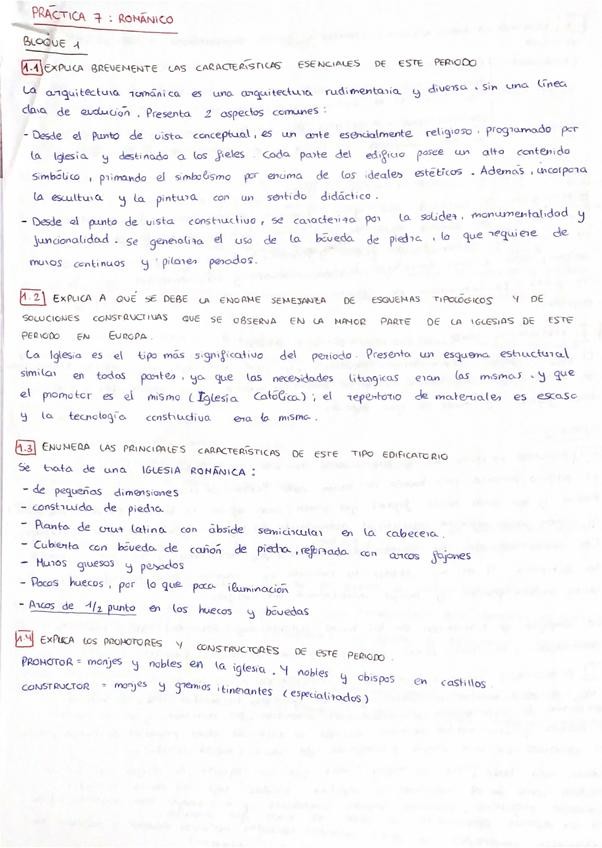 PRÁCTICA 7: ROMÁNICO
BLOQUE 1
1.1 EXPLICA BREVEMENTE LAS CARACTERÍSTICAS ESENCIALES DE ESTE PERIODO
La arquitectura románica es una arquitectura rudimentaria y diversa, sin una línea
clara de evolución. Presenta 2 aspectos comunes:
- Desde el punto de vista conceptual, es un arte esencialmente religioso, programado por
la Iglesia y destinado a los fieles. Cada parte del edificio posee un alto contenido
simbólico, primando el simbolismo por encima de los ideales estéticos. Además, incorpora
la escultura y la pintura con un sentido didáctico.
- Desde el punto de vista constructivo, se caracteriza por la solidez, monumentalidad y
funcionalidad. Se generaliza el uso de la bóveda de piedra, lo que requiere de
muros continuos y pilares pesados.
1.2 EXPLICA A QUÉ SE DEBE LA ENORME SEMEJANZA DE ESQUEMAS TIPOLÓGICOS Y DE
SOLUCIONES CONSTRUCTIVAS QUE SE OBSERVA EN LA MAYOR PARTE DE LA IGLESIAS DE ESTE
PERIODO EN EUROPA.
La Iglesia es el tipo más significativo del periodo. Presenta un esquema estructural
similar en todas partes, ya que las necesidades litúrgicas eran las mismas y que
el promotor es el mismo (Iglesia Católica); el repertorio de materiales es escaso
y la tecnología constructiva era la misma.
1.3 ENUMERA LAS PRINCIPALES CARACTERÍSTICAS DE ESTE TIPO EDIFICATORIO
Se trata de una IGLESIA ROMÁNICA:
- de pequeñas dimensiones
- construida de piedra
- Planta de cruz latina con ábside semicircular en la cabecera.
- Cubierta con bóveda de cañón de piedra, reforzada con arcos fajones
- Muros gruesos y pesados
- Pocos huecos, por lo que poca iluminación
- Arcos de 1/2 punto en los huecos y bóvedas
1.4 EXPLICA LOS PROMOTORES Y CONSTRUCTORES DE ESTE PERIODO.
PROMOTOR = monjes y nobles en la iglesia. Y nobles y obispos en castillos.
CONSTRUCTOR = monjes y gremios itinerantes (especializados)